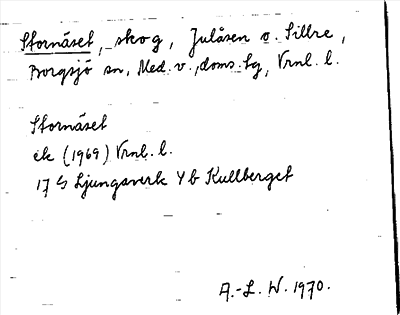 Stornäset, skog, Julåsen o. Sillre,
Borgsjö sn, Med. v., doms. sg, Vrnl. l.
Stornäset
ek (1969) Vrnl. l.
17 G Ljungaverk 4 b Kullberget
A.-L. W. 1970.